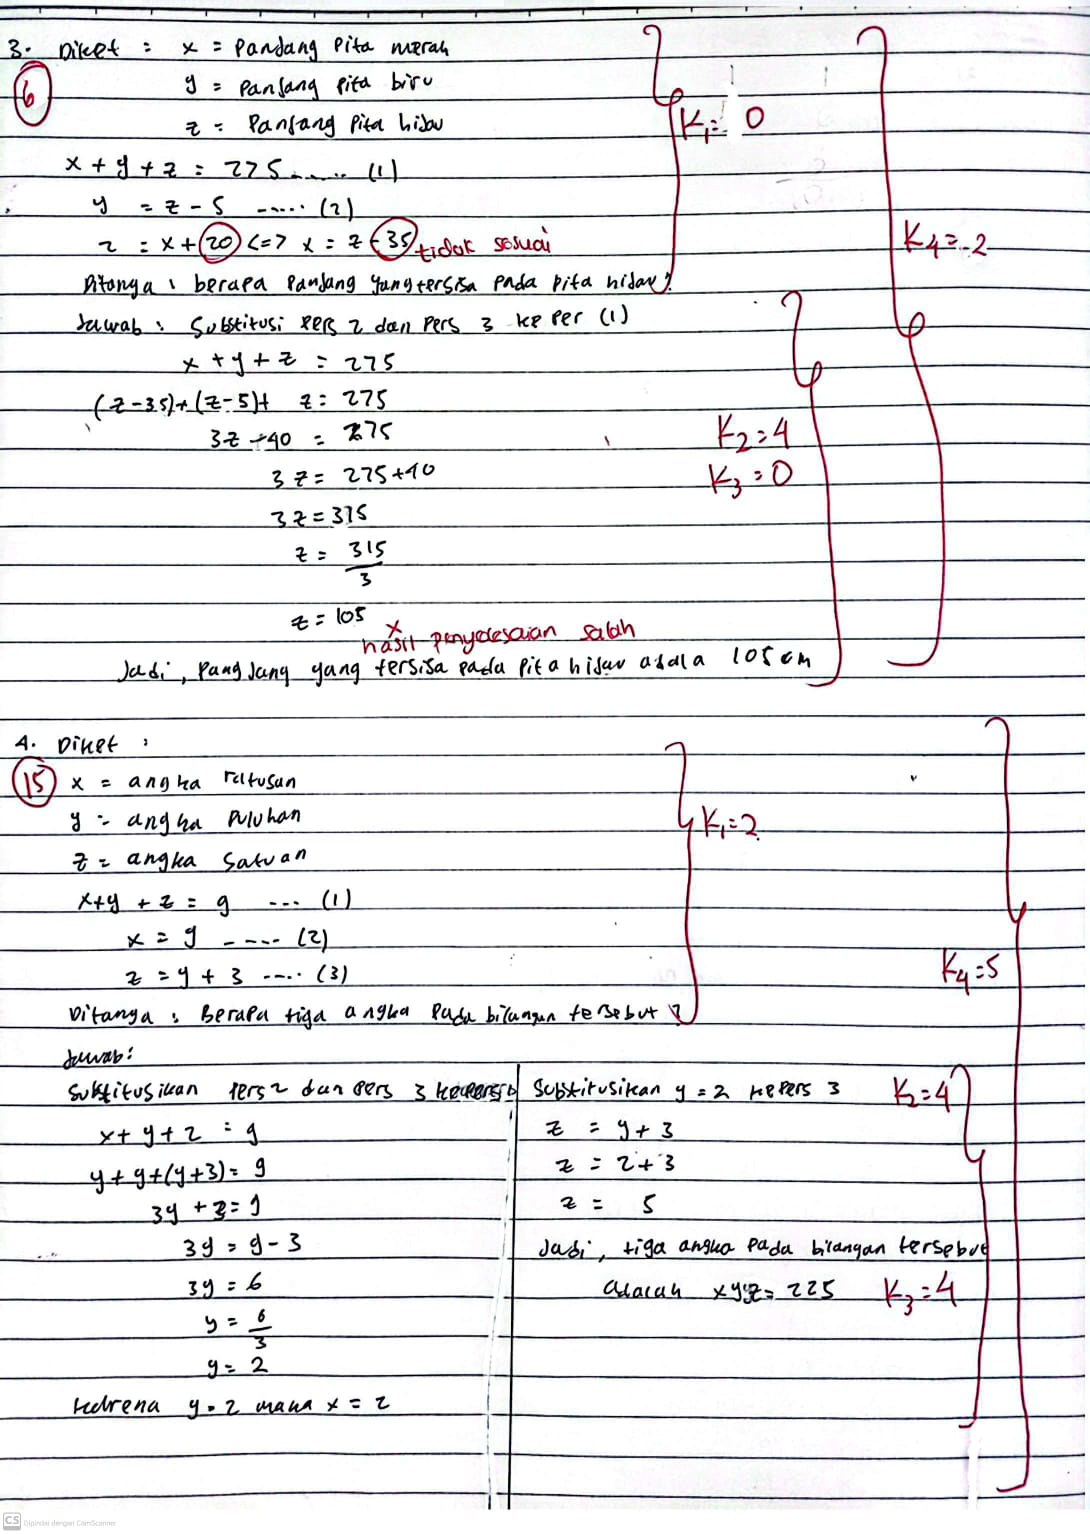 3. Diket : x = Pandang Pita merah
6
y = Panjang Pita biru
z = Panjang Pita hijau
K₁ = 0
x + y + z = 275 ...... (1)
y = z - 5 ..... (2)
z = x + 20 <=> x = z - 35 tidak sesuai
K₄ = 2
Ditanya : berapa Panjang yang tersisa pada pita hijau?
Jawab : Substitusi pers 2 dan Pers 3 ke Per (1)
x + y + z = 275
(z-35)+(z-5)+ z = 275
3z - 40 = 275
K₂ = 4
3z = 275+40
K₃ = 0
3z = 315
z = 315
3
z = 105 x
hasil penyelesaian salah
Jadi, Pangjang yang tersisa pada Pita hijau adala 105 cm
4. Diket :
15
x = angka ratusan
y = angka Puluhan
K₁ = 2
z = angka Satuan
x+y + z = 9 ... (1)
x = y ..... (2)
K₄ = 5
z = y + 3 ..... (3)
Ditanya : Berapa tiga angka Pada bilangan tersebut ?
Jawab :
Substitusikan Pers 2 dan Pers 3
x + y + z = 9
y + y + (y+3) = 9
3y + 3 = 9
3y = 9 - 3
3y = 6
y = 6
3
y = 2
karena y = 2 maka x = 2
Substitusikan y = 2 ke Pers 3
K₂ = 4
z = y + 3
z = 2 + 3
z = 5
Jadi, tiga angka Pada bilangan tersebut
adalah xyz = 225
K₃ = 4
CS Dipindai dengan CamScanner